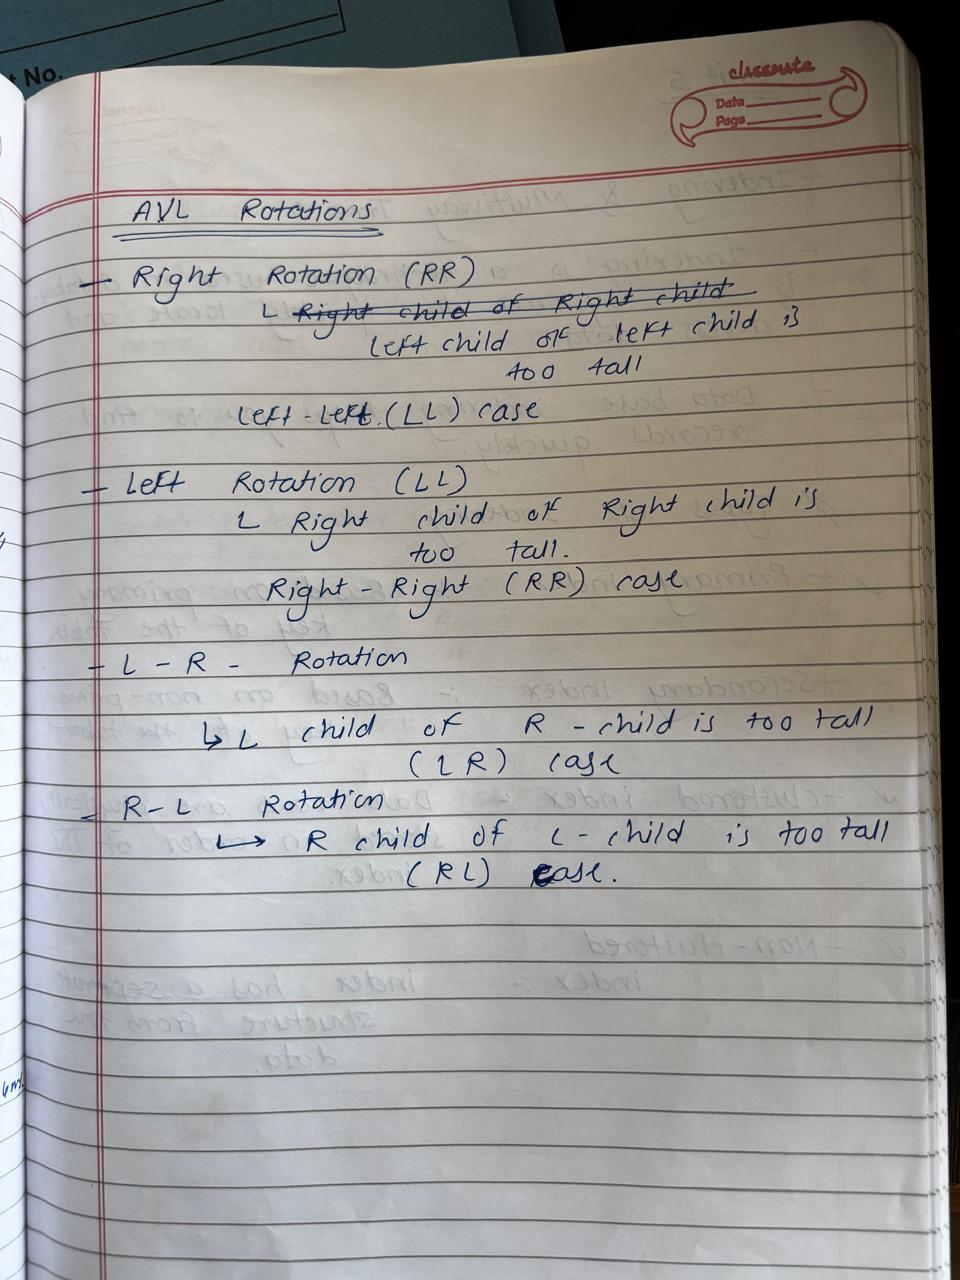 t No.
classmate
Date
Page
AVL Rotations
- Right Rotation (RR)
L Right child of Right child
Left child of left child is
too tall
Left-Left (LL) case
- Left Rotation (LL)
L Right child of Right child is
too tall.
Right-Right (RR) case
- L-R- Rotation
↳ L child of R-child is too tall
(LR) case
- R-L Rotation
↳ R child of L-child is too tall
(RL) case.